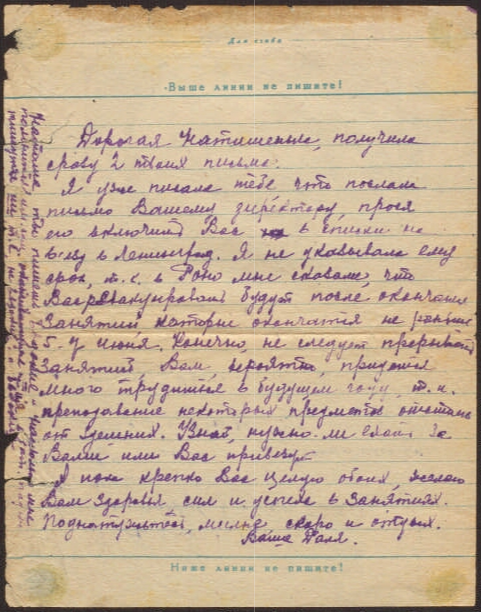 Выше линии не пишите!
Дорогая Наташенька, получила
сразу 2 твоих письма.
Я уже писала тебе что послала
письмо Вашему директору, прося
его включить Вас в списки на
в'езд в Ленинград. Я не указывала ему
срок, т.к. в Роно мне сказали, что
Вас реэвакуировать будут после окончания
занятий которые окончатся не раньше
5-7 июня. Конечно, не следует прерывать
занятий, Вам, вероятно, придется
много трудиться в будущем году, т.к.
преподавание некоторых предметов отстало
от здешних. Узнай, нужно ли ехать за
Вами или Вас привезут
Я пока крепко Вас целую обоих, желаю
Вам здоровья сил и успеха в занятиях.
Поднатужьтесь, милые, скоро и отдых.
Ваша Галя.
Ниже линии не пишите!
Наташа, ты пишешь